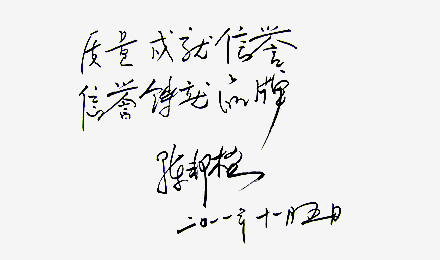 质量成就信誉
信誉铸就品牌
陈邦柱
二〇一一年十一月五日